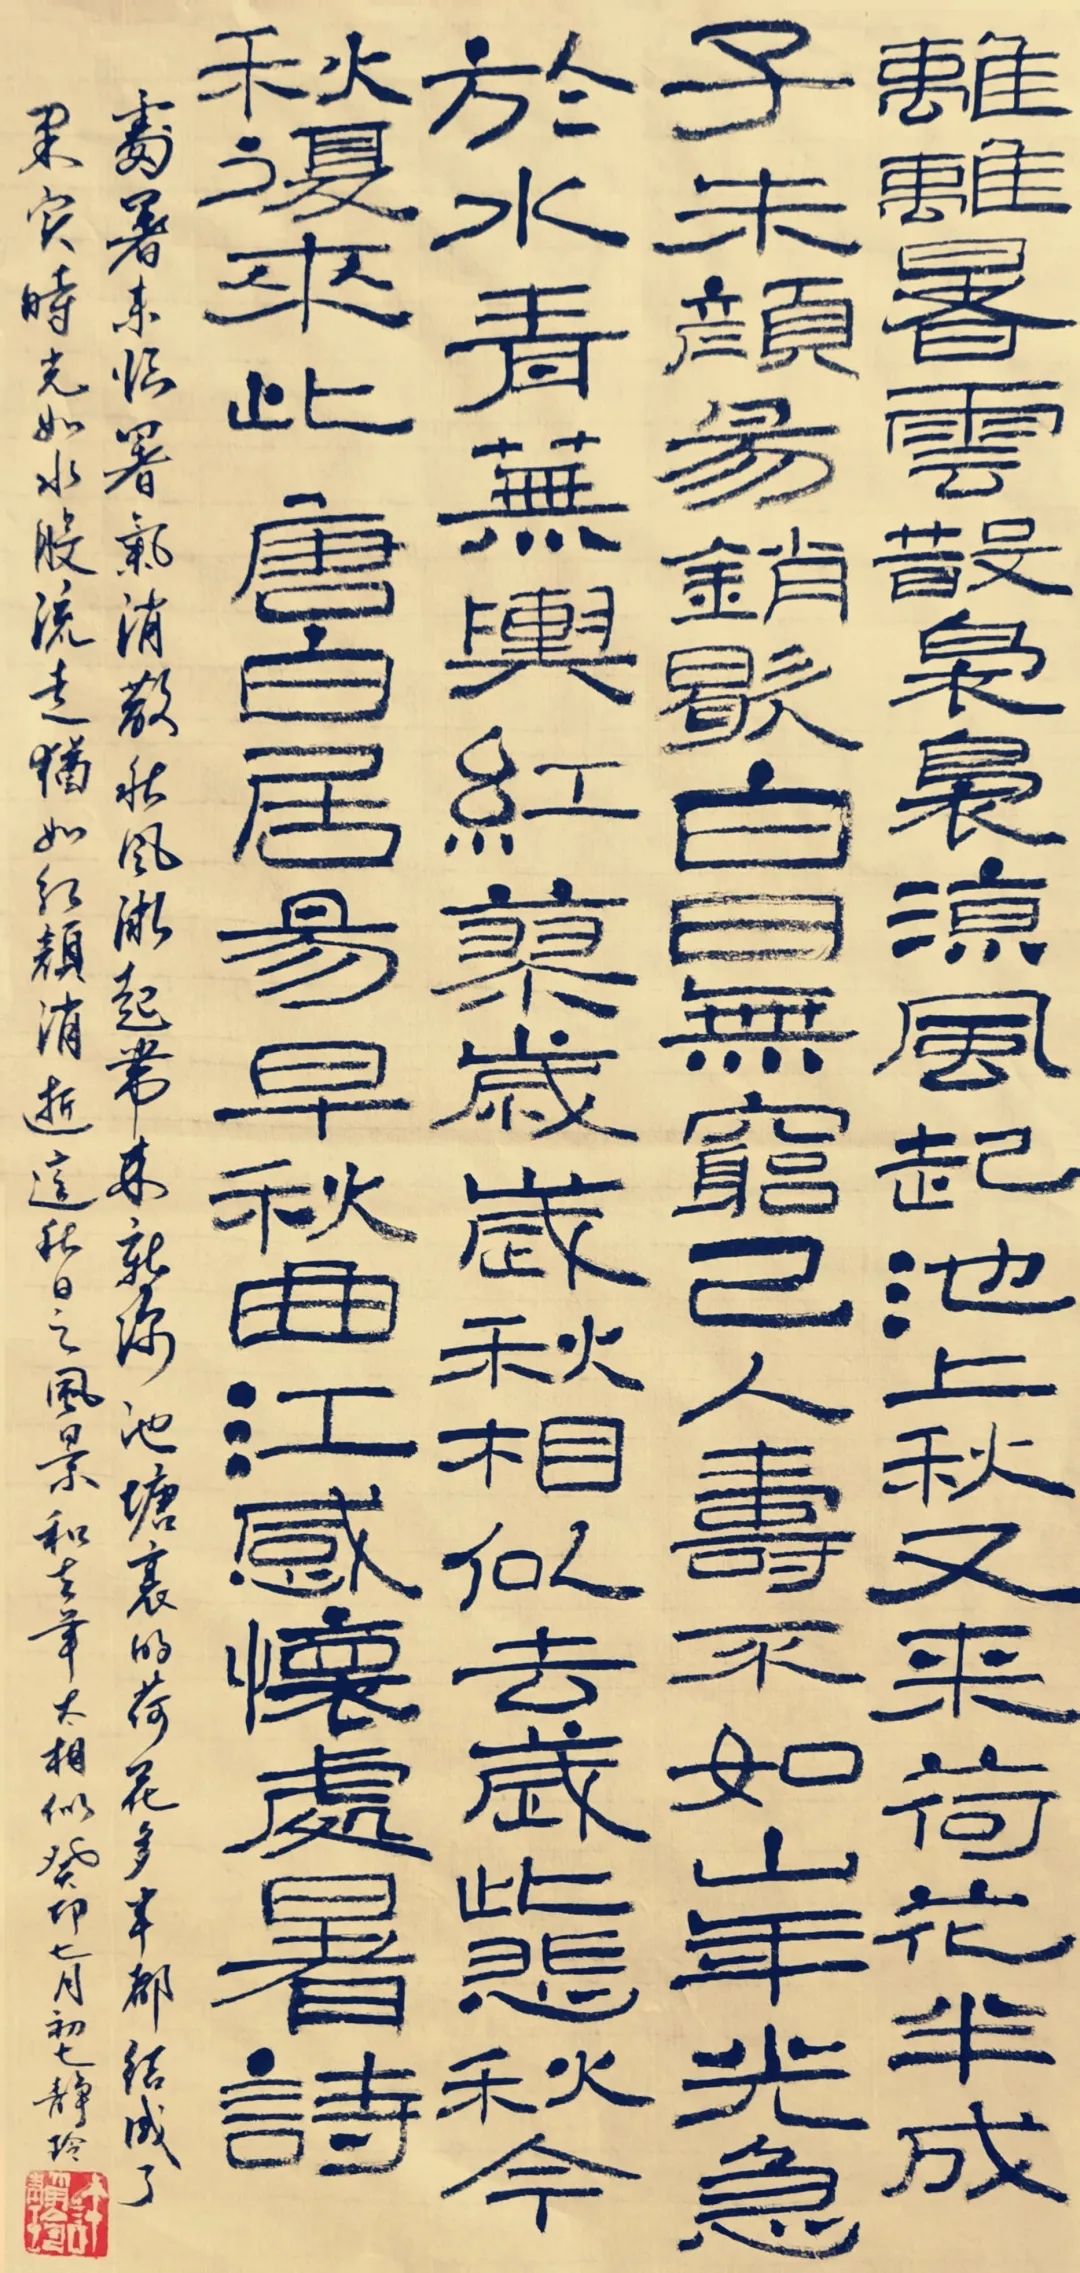 離離暑雲散裊裊涼風起池上秋又来荷花半成
子朱顔易銷歇白日無窮已人壽不如山年光急
於水青蕪與紅蓼歲歲秋相似去歲此悲秋今
秋復來此 唐白居易早秋曲江感懷處暑詩
處暑来临暑氣消散秋风渐起带来新凉池塘裏的荷花多半都結成了
果实時光如水般流走猶如红顏消逝這秋日之風景和去年大相似癸卯七月初七静玲